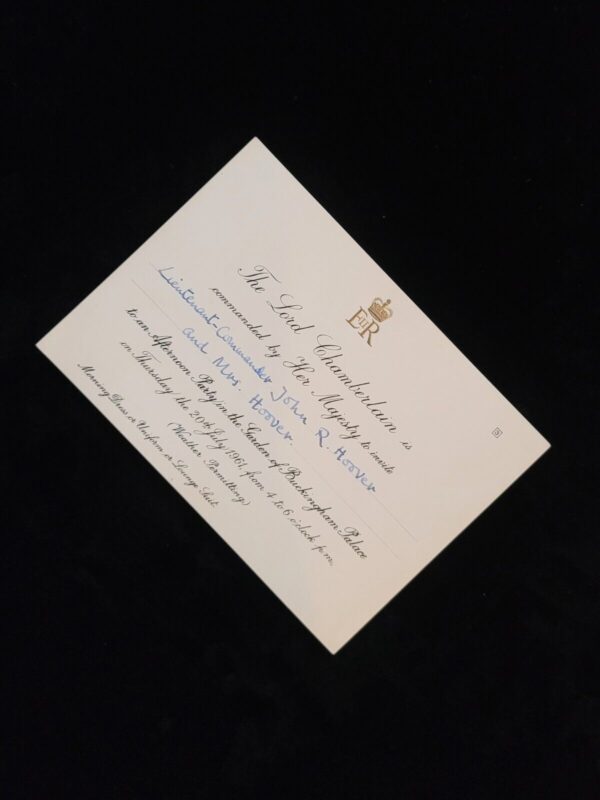 EIIR
The Lord Chamberlain is
commanded by Her Majesty to invite
Lieutenant-Commander John R. Hoover
and Mrs. Hoover.
to an Afternoon Party in the Garden of Buckingham Palace
on Thursday the 20th July 1961, from 4 to 6 o'clock p.m.
(Weather Permitting)
Morning Dress or Uniform or Lounge Suit